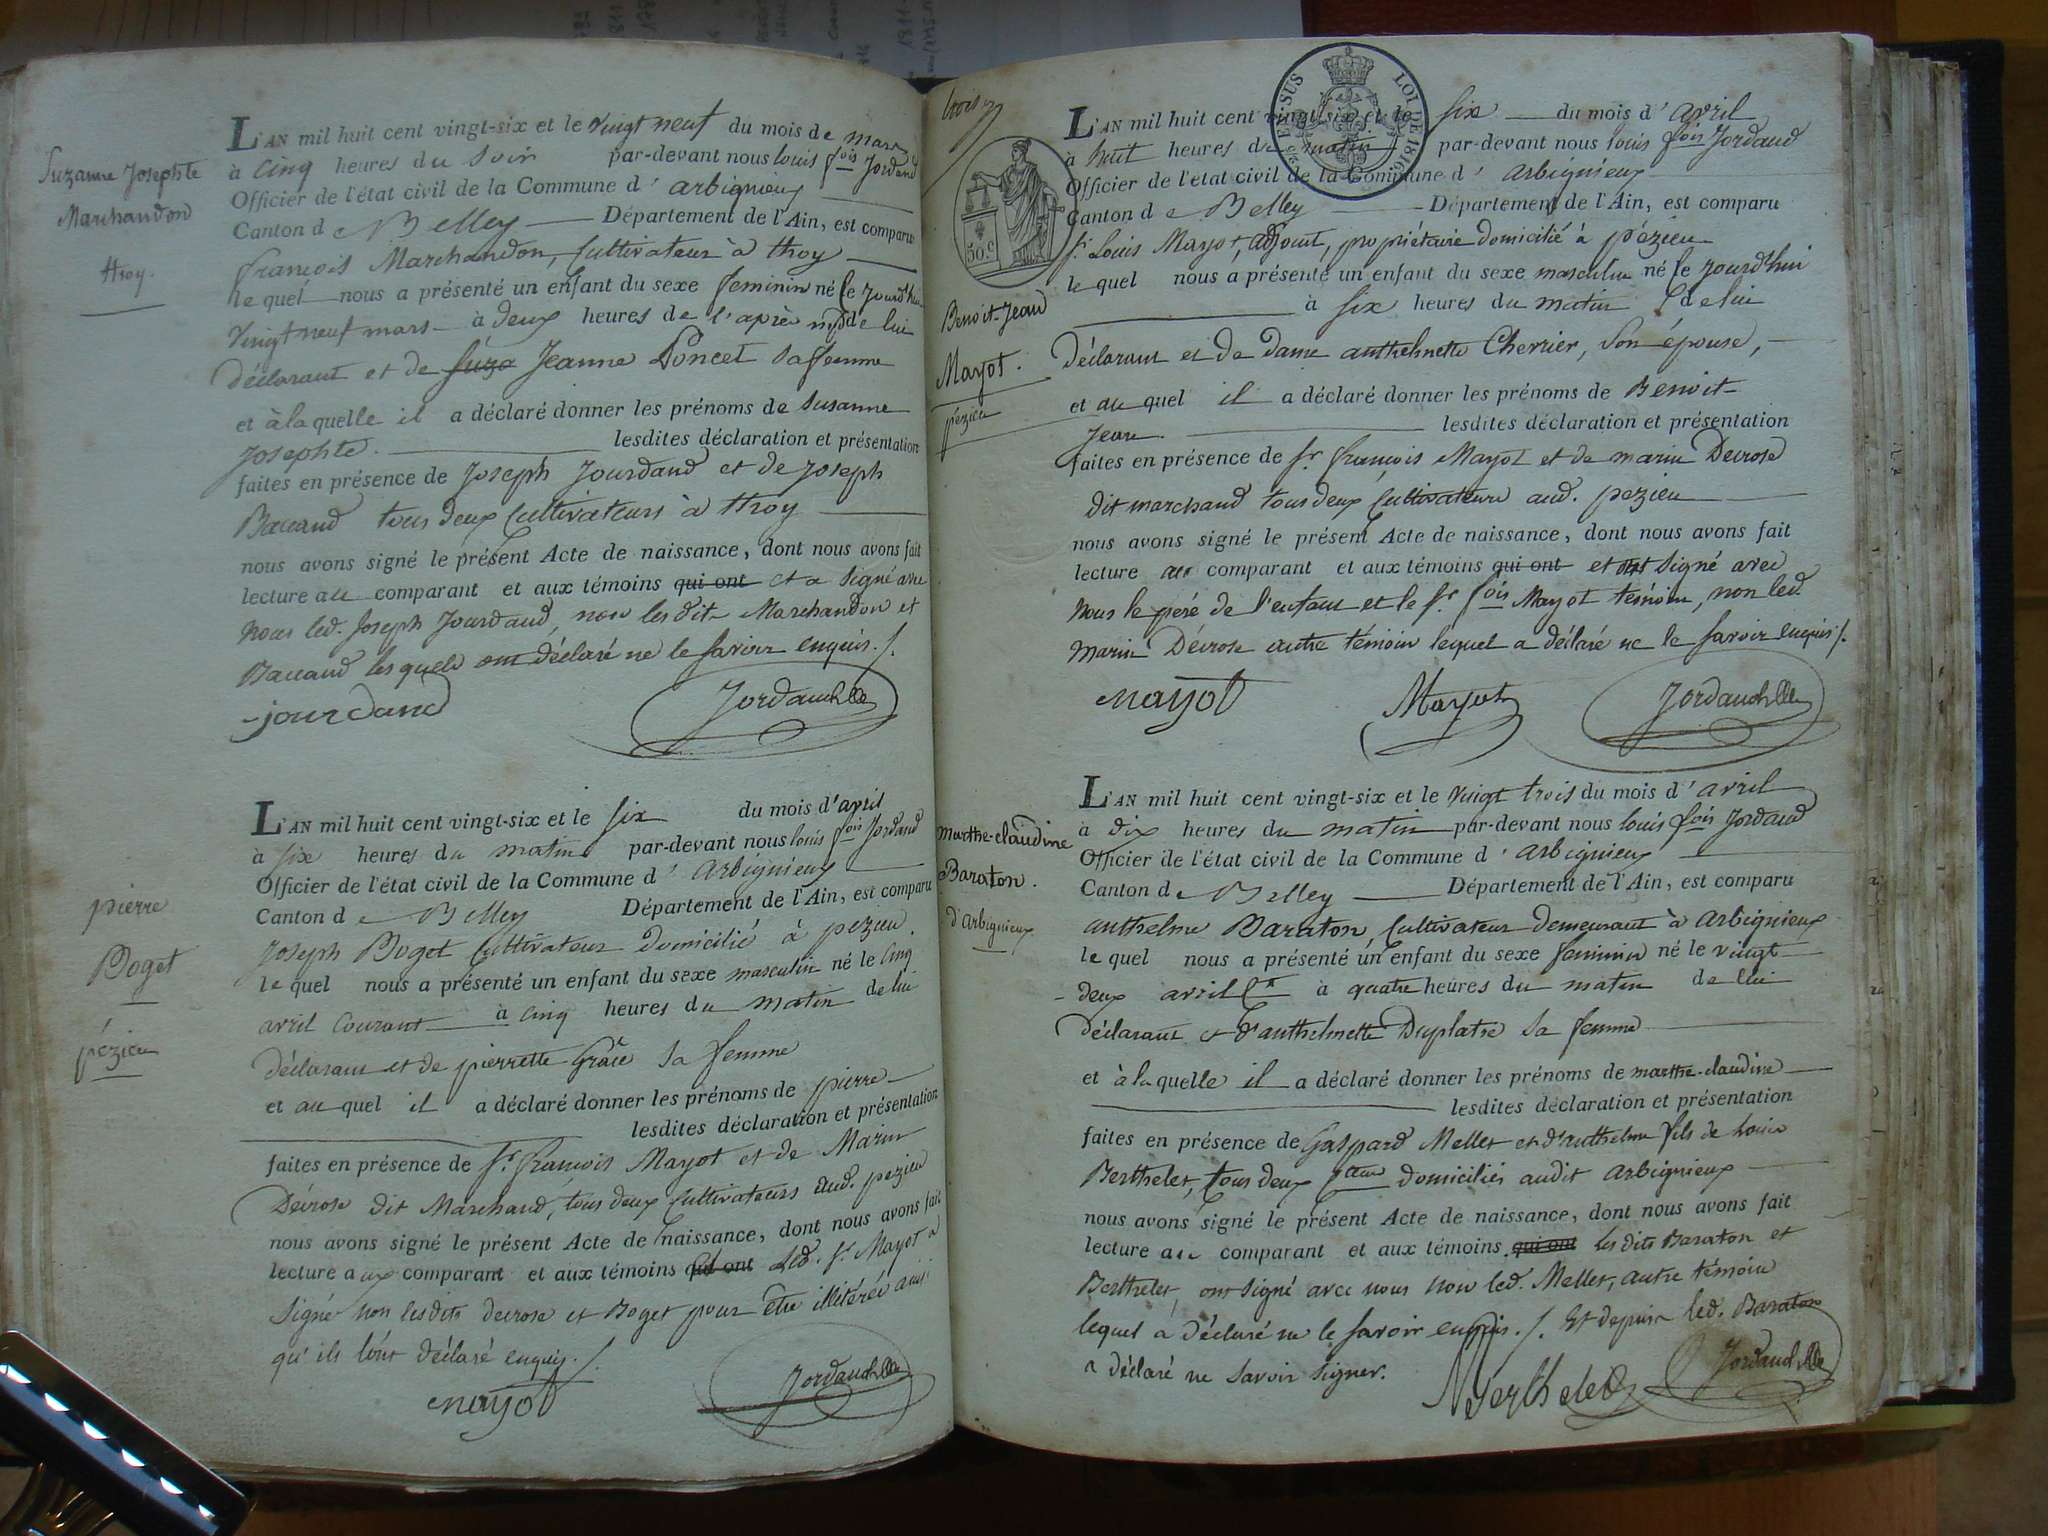 Suzanne Josephte
Marchandon
Thoy.
L'AN mil huit cent vingt-six et le vingt neuf du mois de mars
à cinq heures du soir par-devant nous louis fois Jordand
Officier de l'état civil de la Commune d' arbignieux
Canton de Belley Département de l'Ain, est comparu
françois Marchandon, Cultivateur à thoy
le quel nous a présenté un enfant du sexe feminin né le jourd'hui
vingt neuf mars à deux heures de l'après midi de lui
déclarant et de suza Jeanne Poncet sa femme
et à la quelle il a déclaré donner les prénoms de susanne
Josephte. lesdites déclaration et présentation
faites en présence de Joseph Jourdand et de Joseph
Baccand tous deux Cultivateurs à thoy
nous avons signé le présent Acte de naissance, dont nous avons fait
lecture au comparant et aux témoins qui ont et a signé avec
nous led. Joseph Jourdand, non lesdit Marchandon et
Baccand lesquels ont déclaré ne le savoir enquis ./.
jourdand Jordand
pierre
Boget
pézieu
L'AN mil huit cent vingt-six et le six du mois d'avril
à six heures du matin par-devant nous louis fois Jordand
Officier de l'état civil de la Commune d' Arbignieux
Canton de Belley Département de l'Ain, est comparu
Joseph Boget Cultivateur domicilié à pézieu.
le quel nous a présenté un enfant du sexe masculin né le cinq
avril courant à cinq heures du matin de lui
déclarant et de pierrette Grâce sa femme
et au quel il a déclaré donner les prénoms de pierre
lesdites déclaration et présentation
faites en présence de sr. françois Mayot et de Marin
Décrose dit Marchand, tous deux Cultivateurs aud. pezieu
nous avons signé le présent Acte de naissance, dont nous avons fait
lecture aux comparant et aux témoins qui ont Led. sr. Mayot a
signé non lesdits decrose et Boget pour être illitérés ainsi
qu'ils l'ont déclaré enquis ./.
mayot Jordand
trois
50.c
Benoit-Jean
Mayot.
pézieu
L'AN mil huit cent vingt-six et le six du mois d' avril
à huit heures du matin par-devant nous louis fois Jordand
Officier de l'état civil de la Commune d' arbignieux
Canton de Belley Département de l'Ain, est comparu
sr. Louis Mayot, adjoint, propriétaire domicilié à pézieu
le quel nous a présenté un enfant du sexe masculin né le jourd'hui
à six heures du matin de lui
déclarant et de dame anthelmette Cherrier, son épouse,
et au quel il a déclaré donner les prénoms de Benoit-
Jean. lesdites déclaration et présentation
faites en présence de sr. françois Mayot et de marin Decrose
dit marchand tous deux Cultivateurs aud. pezieu
nous avons signé le présent Acte de naissance, dont nous avons fait
lecture au comparant et aux témoins qui ont et ont signé avec
nous le père de l'enfant et le sr. fois Mayot témoin, non led.
Marin Décrose autre témoin lequel a déclaré ne le savoir enquis ./.
mayot Mayot Jordand
marthe-claudine
Baraton.
d'arbignieux
L'AN mil huit cent vingt-six et le vingt trois du mois d' avril
à dix heures du matin par-devant nous louis fois Jordand
Officier de l'état civil de la Commune d' arbignieux
Canton de Belley Département de l'Ain, est comparu
anthelme Baraton, Cultivateur demeurant à arbignieux
le quel nous a présenté un enfant du sexe feminin né le vingt
deux avril Ct à quatre heures du matin de lui
déclarant et d'anthelmette Duplatre sa femme
et à la quelle il a déclaré donner les prénoms de marthe-claudine
lesdites déclaration et présentation
faites en présence de Gaspard Meller et d'anthelme fils de Louis
Berthelet, tous deux domiciliés audit arbignieux
nous avons signé le présent Acte de naissance, dont nous avons fait
lecture au comparant et aux témoins qui ont lesdits Baraton et
Berthelet, ont signé avec nous non led. Meller, autre témoin
lequel a déclaré ne le savoir enquis ./. Et depuis led. Baraton
a déclaré ne savoir signer.
Berthelet Jordand